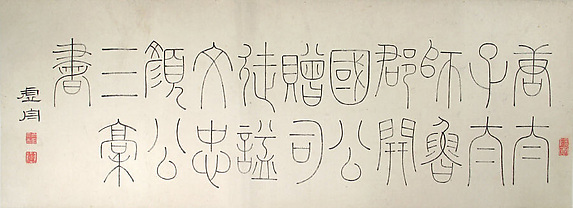 唐太
子太
師魯
郡開
國公
贈司
徒謚
文忠
顏公
三稾
書
虛舟